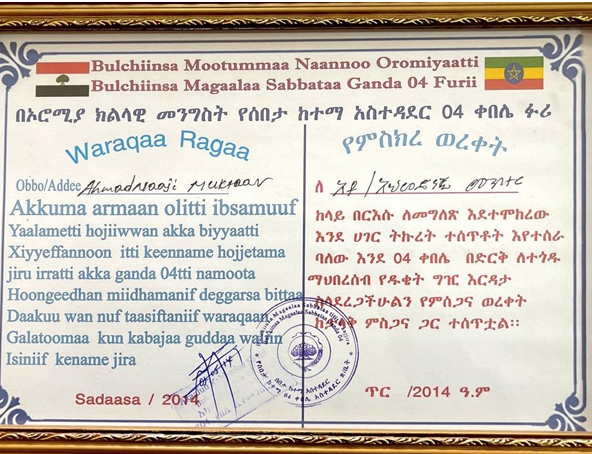 Bulchiinsa Mootummaa Naannoo Oromiyaatti
Bulchiinsa Magaalaa Sabbataa Ganda 04 Furii
በኦሮሚያ ክልላዊ መንግስት የሰበታ ከተማ አስተዳደር 04 ቀበሌ ፉሪ
Waraqaa Ragaa
Obbo/Addee Ahmadnaaji Muktaar
Akkuma armaan olitti ibsamuuf
Yaalametti hojiiwwan akka biyyaatti
Xiyyeffannoon itti keenname hojjetama
jiru irratti akka ganda 04tti namoota
Hoongeedhan miidhamanif deggarsa bittaa
Daakuu wan nuf taasiftaniif waraqaan
Galatoomaa kun kabajaa guddaa waliin
Isiniif kename jira
Sadaasa / 2014
የምስክረ ወረቀት
ለ አቶ/
ከላይ በርእሱ ለመግለጽ እደተሞከረው
እንደ ሀገር ትኩረት ተሰጥቶት እየተሰራ
ባለው እንደ 04 ቀበሌ በድርቅ ለተጎዱ
ማህበረሰብ የዱቄት ግዢር እርዳታ
ስላደረጋችሁልን የምስጋና ወረቀት
ከታላቅ ምስጋና ጋር ተሰጥቷል፡፡
ጥር /2014 ዓ.ም